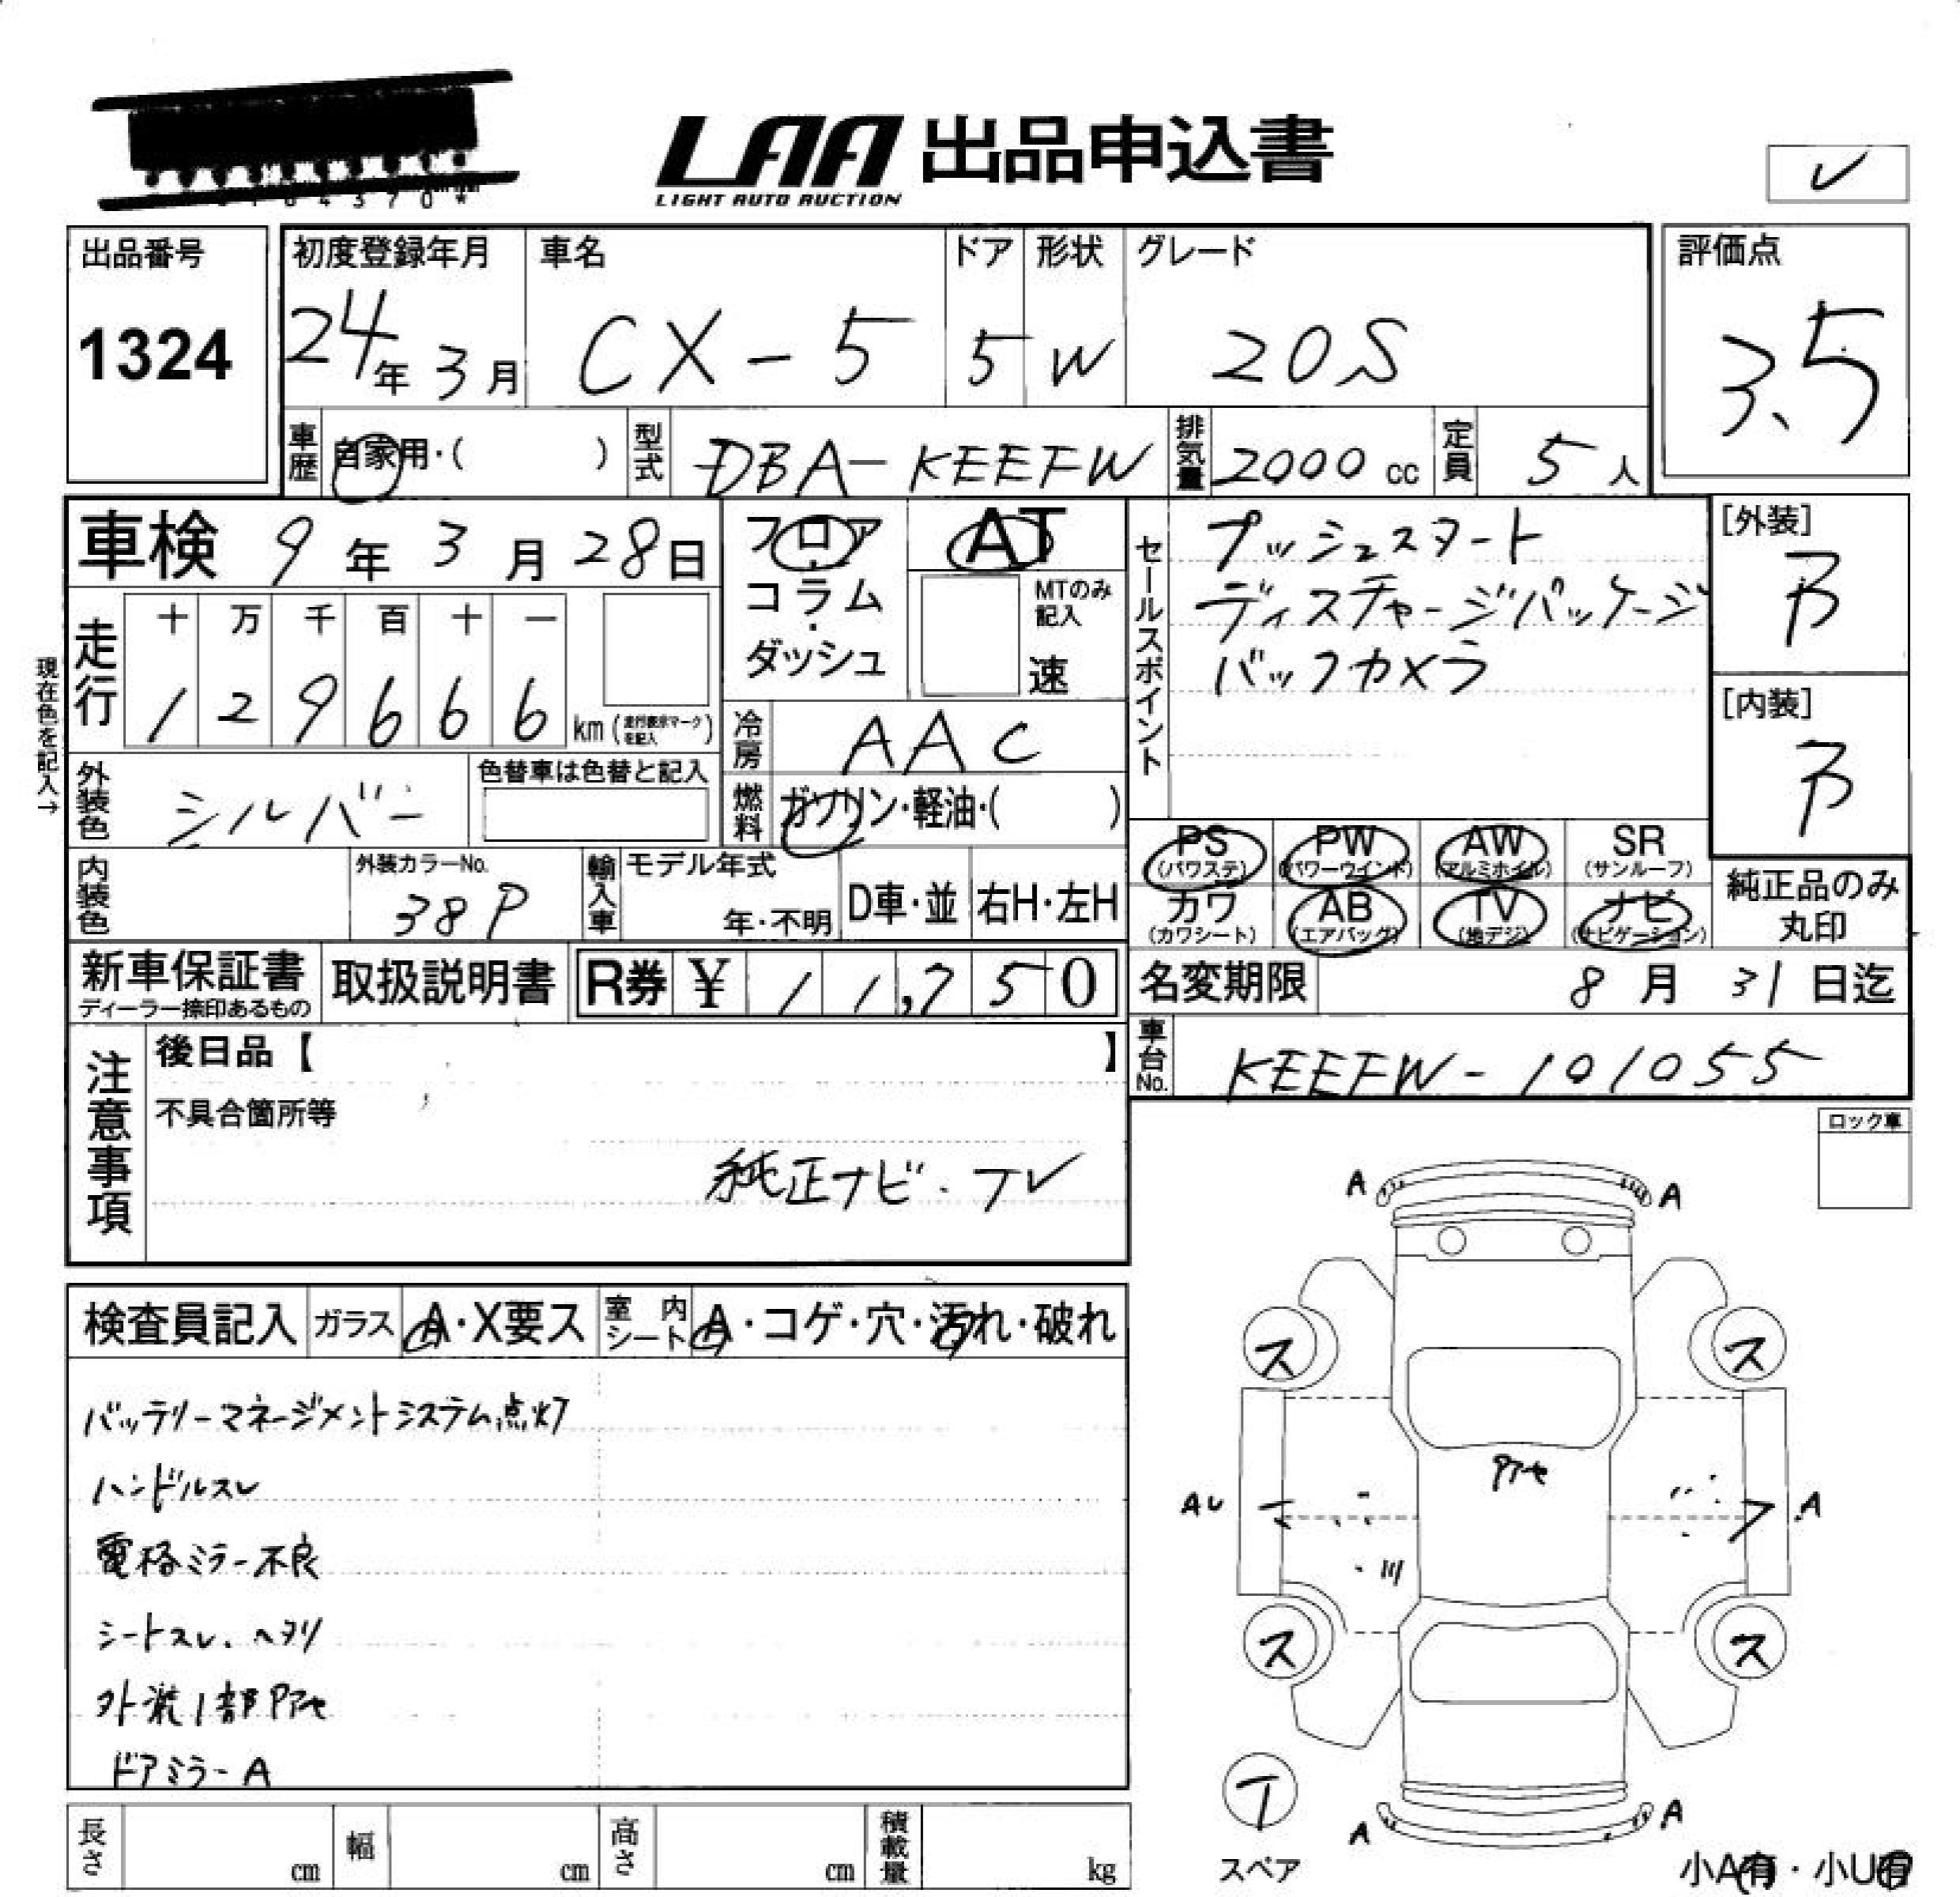 LAA 出品申込書
LIGHT AUTO AUCTION
レ
出品番号
1324
初度登録年月
24年 3月
車名
CX-5
ドア
5
形状
W
グレード
20S
評価点
3.5
車歴
自家用・( )
型式
DBA-KEEFW
排気量
2000 cc
定員
5人
車検 9年 3月 28日
フロア
コラム
・
ダッシュ
AT
MTのみ
記入
速
セールスポイント
プッシュスタート
ディスチャージパッケージ
バックカメラ
[外装]
B
[内装]
B
現在色を記入→
走行
十 万 千 百 十 一
1 2 9 6 6 6 km (走行表示マークを記入)
冷房
AAC
外装色
シルバー
色替車は色替と記入
燃料
ガソリン・軽油・( )
内装色
外装カラーNo.
38P
輸入車
モデル年式
年・不明
D車・並
右H・左H
PS
(パワステ)
PW
(パワーウインド)
AW
(アルミホイル)
SR
(サンルーフ)
カワ
(カワシート)
AB
(エアバッグ)
TV
(地デジ)
ナビ
(ナビゲーション)
純正品のみ
丸印
新車保証書
ディーラー捺印あるもの
取扱説明書
R券 ¥ 11,750
名変期限 8月 31日迄
車台No.
KEEFW-101055
注意事項
後日品【 】
不具合箇所等
純正ナビ・TV
ロック車
検査員記入
ガラス
A・X要ス
室内シート
A・コゲ・穴・汚れ・破れ
バッテリーマネージメントシステム点灯
ハンドルスレ
電格ミラー不良
シートスレ、ヘタリ
外装1部Pアセ
ドアミラーA
A
A
ス
ス
Pアセ
AU
A
ス
ス
T
スペア
A
A
小A有・小U有
長さ cm
幅 cm
高さ cm
積載量 kg